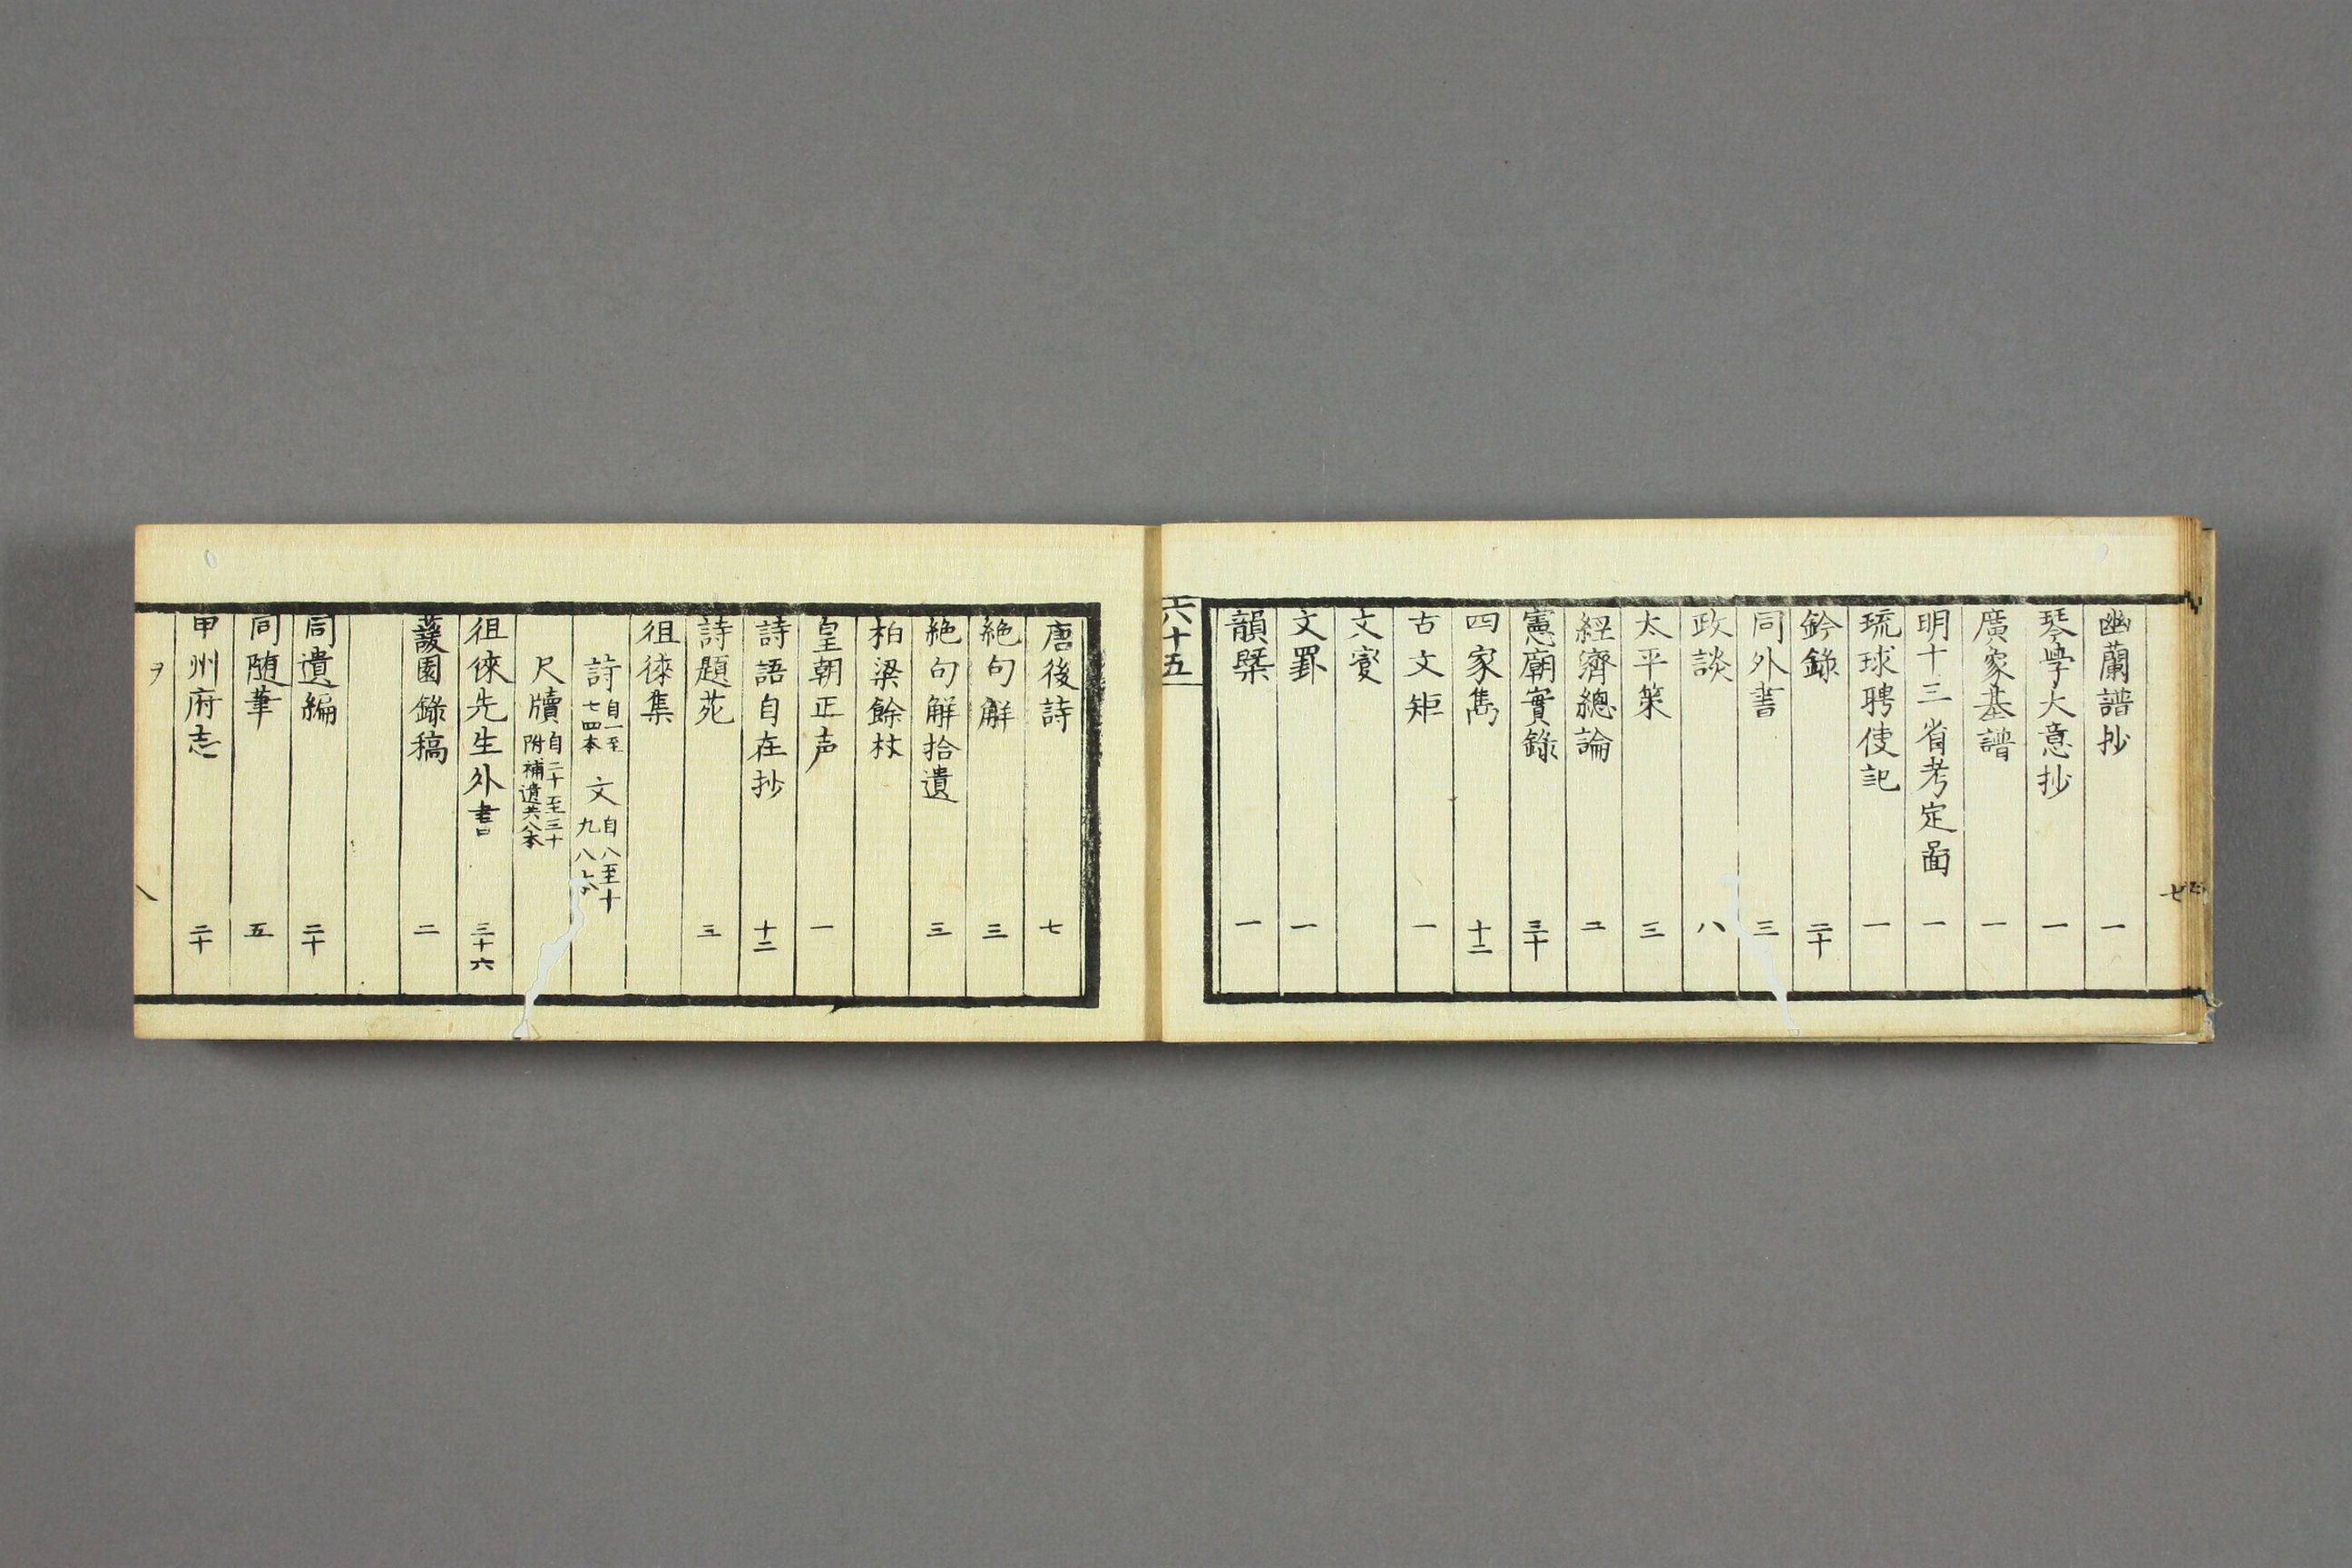 幽蘭譜抄 一
琴學大意抄 一
廣象棊譜 一
明十三省考定圖 一
琉球聘使記 一
鈐錄 二十
同外書 三
政談 八
太平策 三
經濟總論 二
憲廟實錄 三十
四家雋 十二
古文矩 一
文變
文罫 一
韻槩 一
六十五
唐後詩 七
絶句解 三
絶句解拾遺 三
柏梁餘材
皇朝正声 一
詩語自在抄 十二
詩題苑 三
徂徠集
詩 自一至七四本 文 自八至十九八本
尺牘 自二十至三十附補遺共八本
徂徠先生外書 三十六
蘐園錄稿 二
同遺編 二十
同随筆 五
甲州府志 二十
ヲ